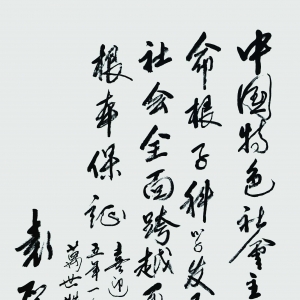 中国特色社会主
命根子科学发
社会全面跨越
根本保证
喜迎
五年一
万世